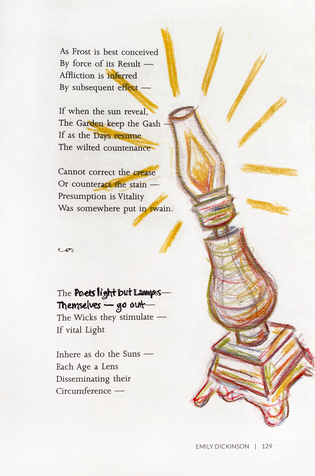 As Frost is best conceived
By force of its Result —
Affliction is inferred
By subsequent effect —
If when the sun reveal,
The Garden keep the Gash —
If as the Days resume
The wilted countenance
Cannot correct the crease
Or counteract the stain —
Presumption is Vitality
Was somewhere put in twain.
The Poets light but Lamps —
Themselves — go out —
The Wicks they stimulate —
If vital Light
Inhere as do the Suns —
Each Age a Lens
Disseminating their
Circumference —
EMILY DICKINSON | 129